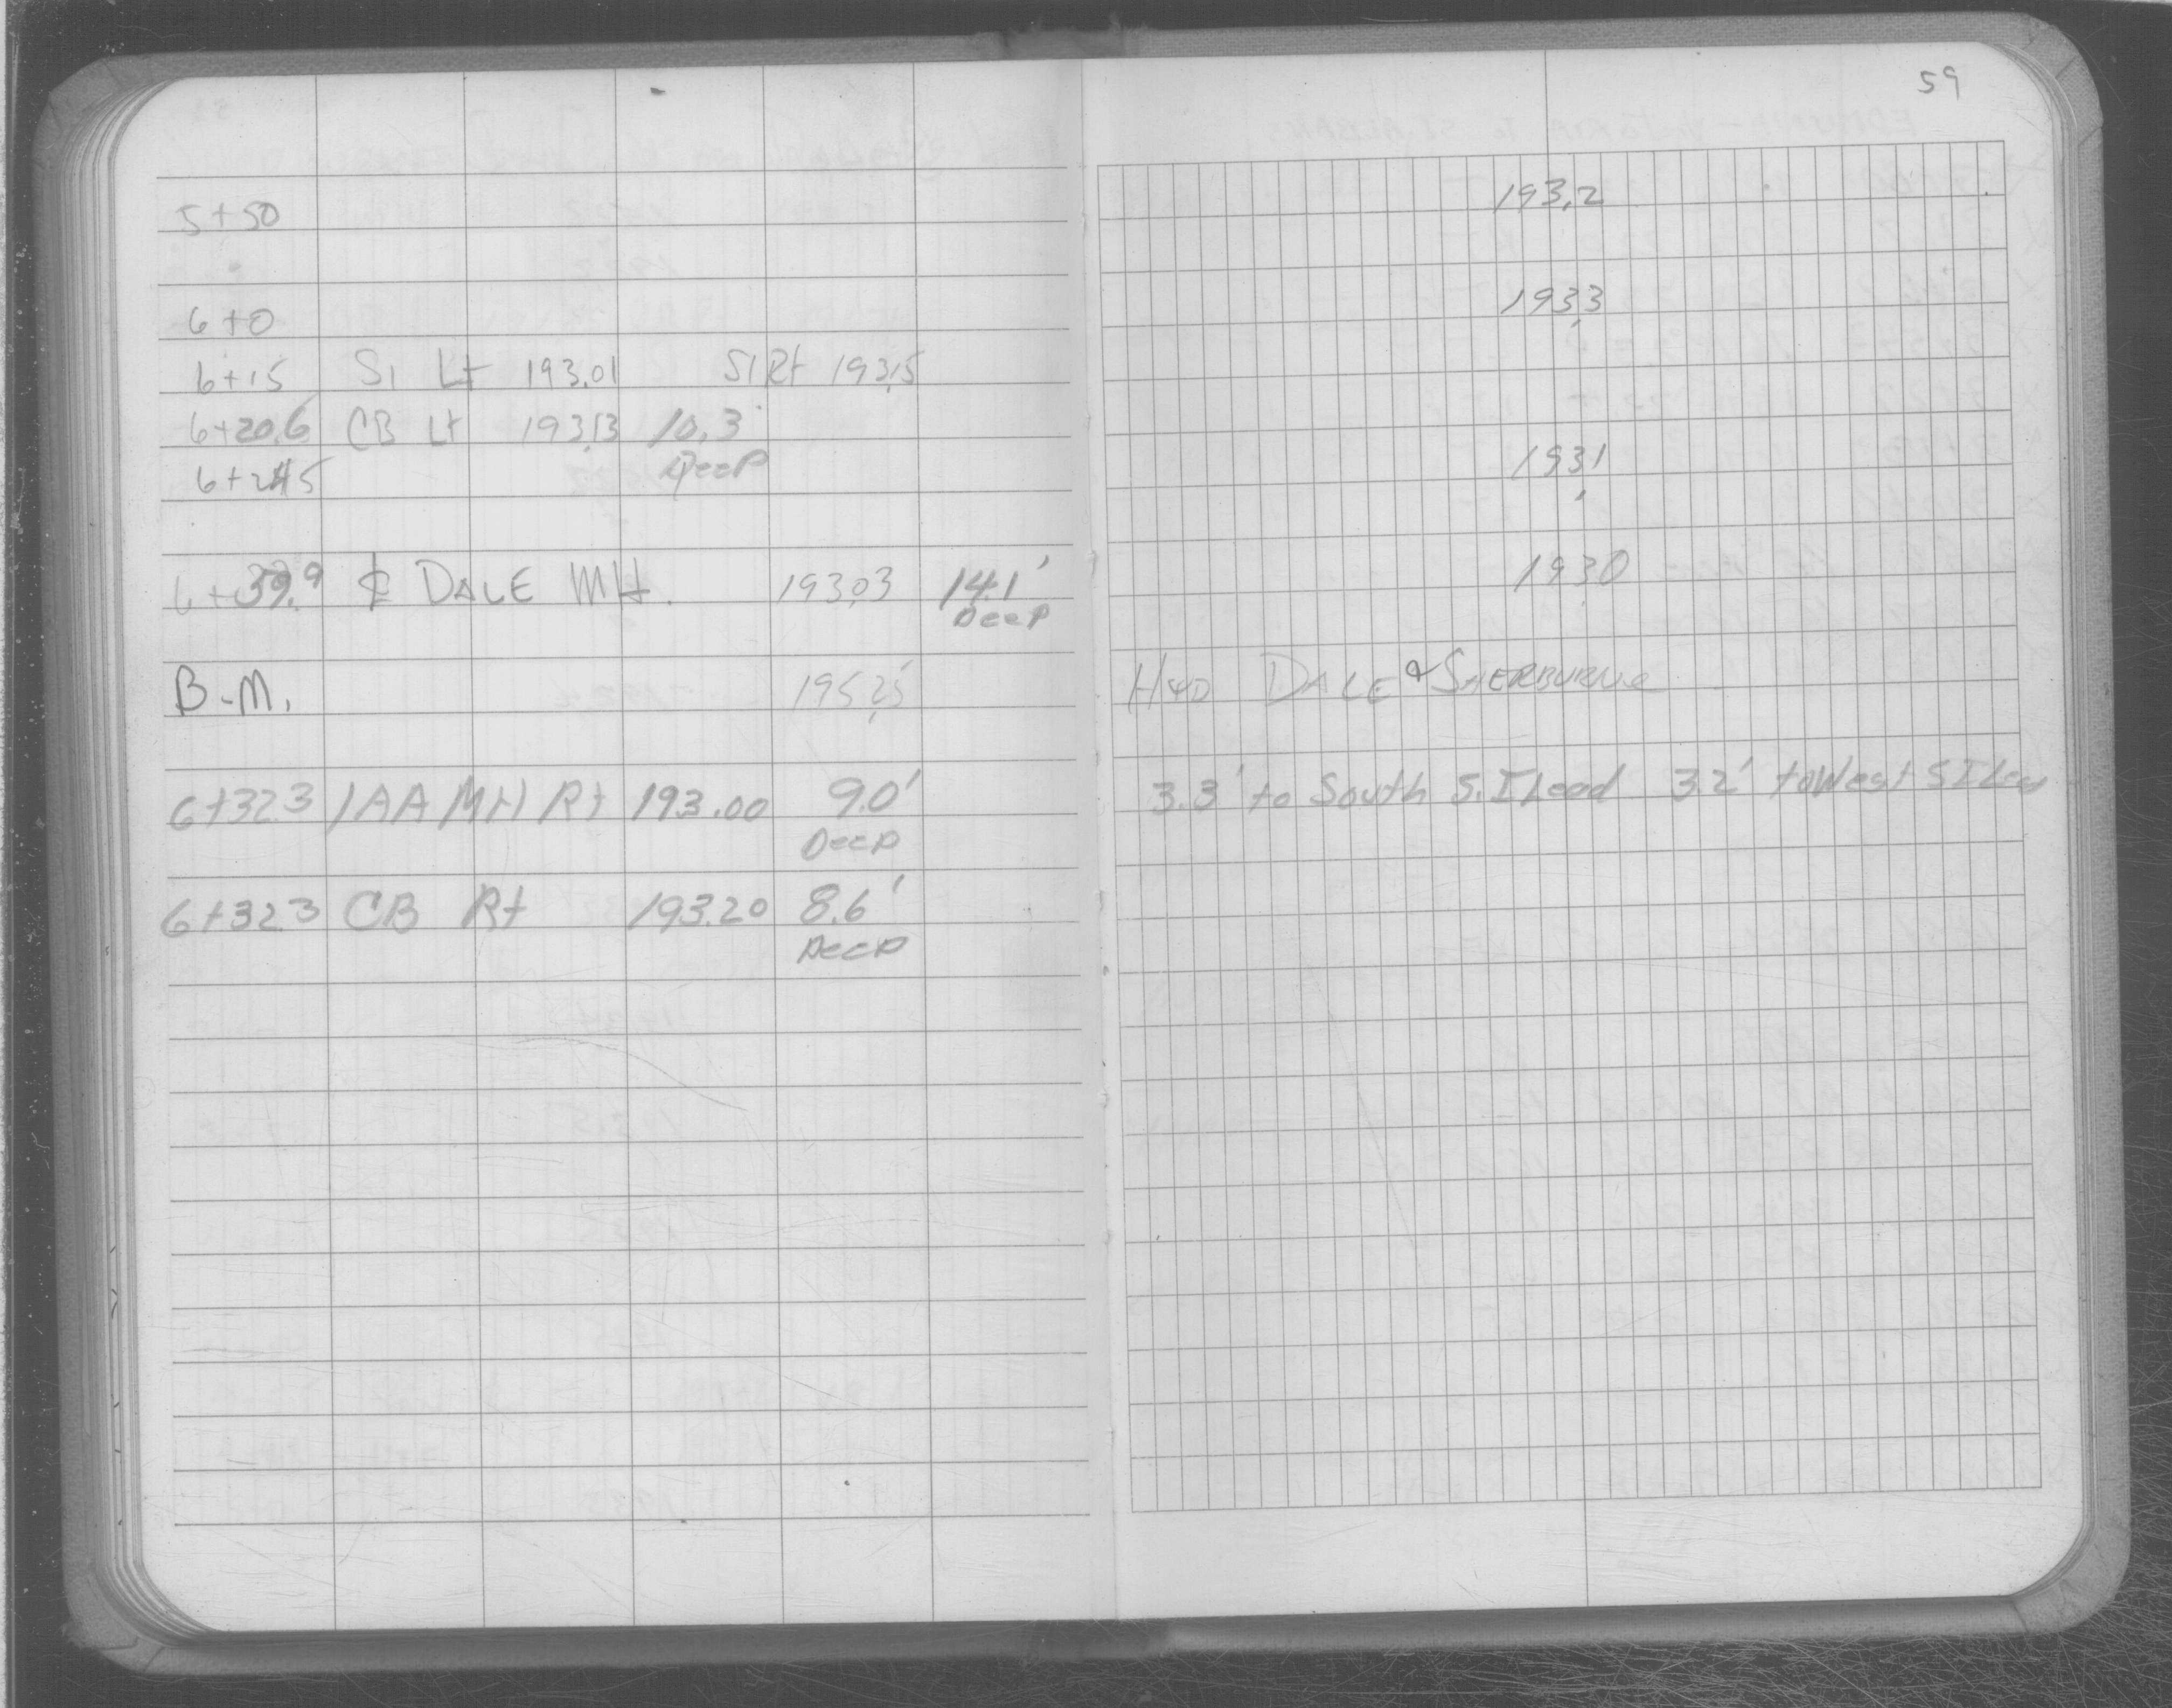 59
5+50 193.2
6+0 193.3
6+15 SI Lt 193.01 SI Rt 193.15
6+20.6 CB Lt 193.13 10.3' Deep
6+24.5 193.1
6+39.9 ℄ DALE MH. 193.03 14.1' Deep 193.0
B-M. 195.25 Hyd DALE & SHERBURNE
6+32.3 1AA MH Rt 193.00 9.0' Deep 3.3' to South S.I Lead 3.2' to West S I
6+32.3 CB Rt 193.20 8.6' Deep